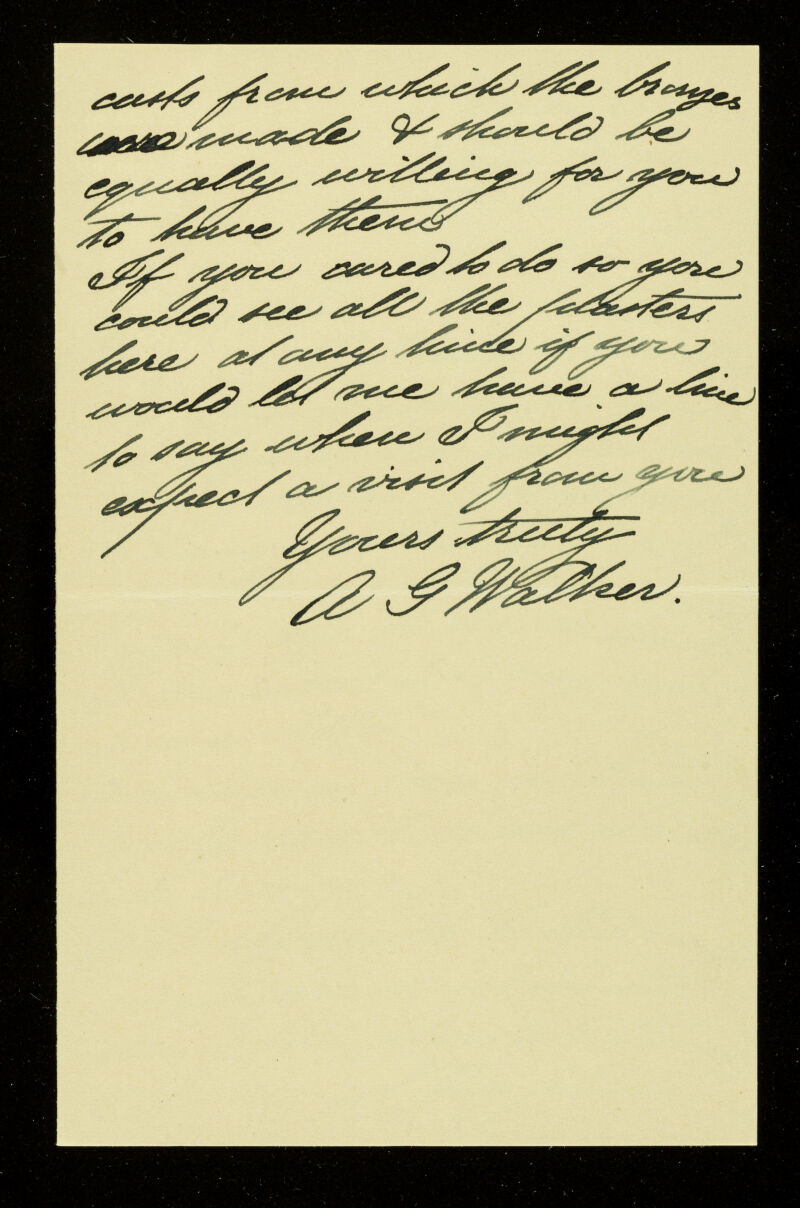 casts from which the bronzes
were made & should be
equally willing for you
to have them
If you cared to do so you
could see all the plasters
here at any time if you
would let me have a line
to say when I might
expect a visit from you
Yours truly
A G Walker.